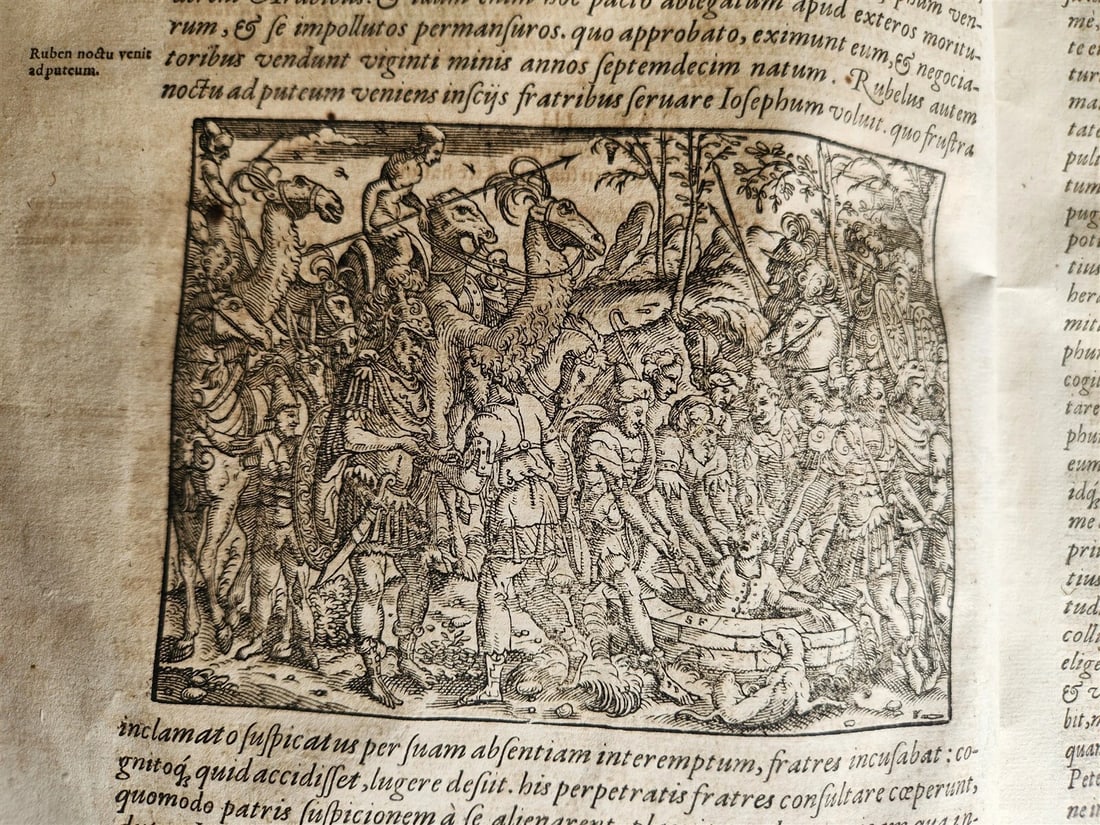 hoc pacto ablegatum apud exteros moritu-
rum, & se impollutos permansuros. quo approbato, eximunt eum, & negocia-
toribus vendunt viginti minis annos septemdecim natum. Rubelus autem
noctu ad puteum veniens inscijs fratribus seruare Iosephum voluit. quo frustra
Ruben noctu venit
ad puteum.
SF
inclamato suspicatus per suam absentiam interemptum, fratres incusabat: co-
gnitoq́; quid accidisset, lugere desiit. his perpetratis fratres consultare cœperunt,
quomodo patris suspicionem à se alienarent.
me,
te
turi
ma
tate
puli
tum
pug
poti
tius
hera
miti
phun
cogi
tare
phu
eum
idq́;
me
pri
tius
tud
colli
elige
& v
bit,
quan
Pete
ne